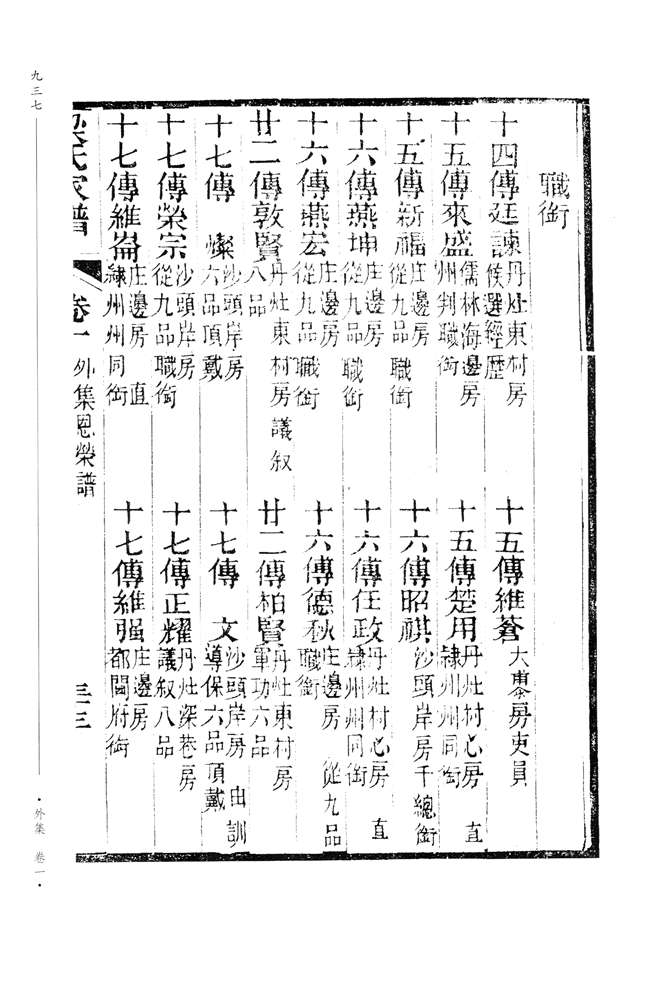 職銜
十四傳廷諫 丹灶東村房 候選經歷
十五傳維蒼 大桼房吏員
十五傳來盛 儒林海邊房 州判職銜
十五傳楚用 丹灶村心房 直隸州州同銜
十五傳新福 庄邊房 從九品職銜
十六傳昭祺 沙頭岸房千總銜
十六傳燕坤 庄邊房 從九品職銜
十六傳任政 丹灶村心房 直隸州州同銜
十六傳燕宏 庄邊房 從九品職銜
十六傳德秋 庄邊房 從九品職銜
廿二傳敦賢 丹灶東村房 議叙八品
廿二傳柏賢 丹灶東村房 軍功六品
十七傳 燦 沙頭岸房 六品頂戴
十七傳 文 沙頭岸房 由訓導保六品頂戴
十七傳榮宗 沙頭岸房 從九品職銜
十七傳正耀 丹灶深巷房 議叙八品
十七傳維崙 庄邊房 直隸州州同銜
十七傳維强 庄邊房 都閫府銜
氏家譜 卷一 外集恩榮譜 三三
九三七
·外集 卷一·